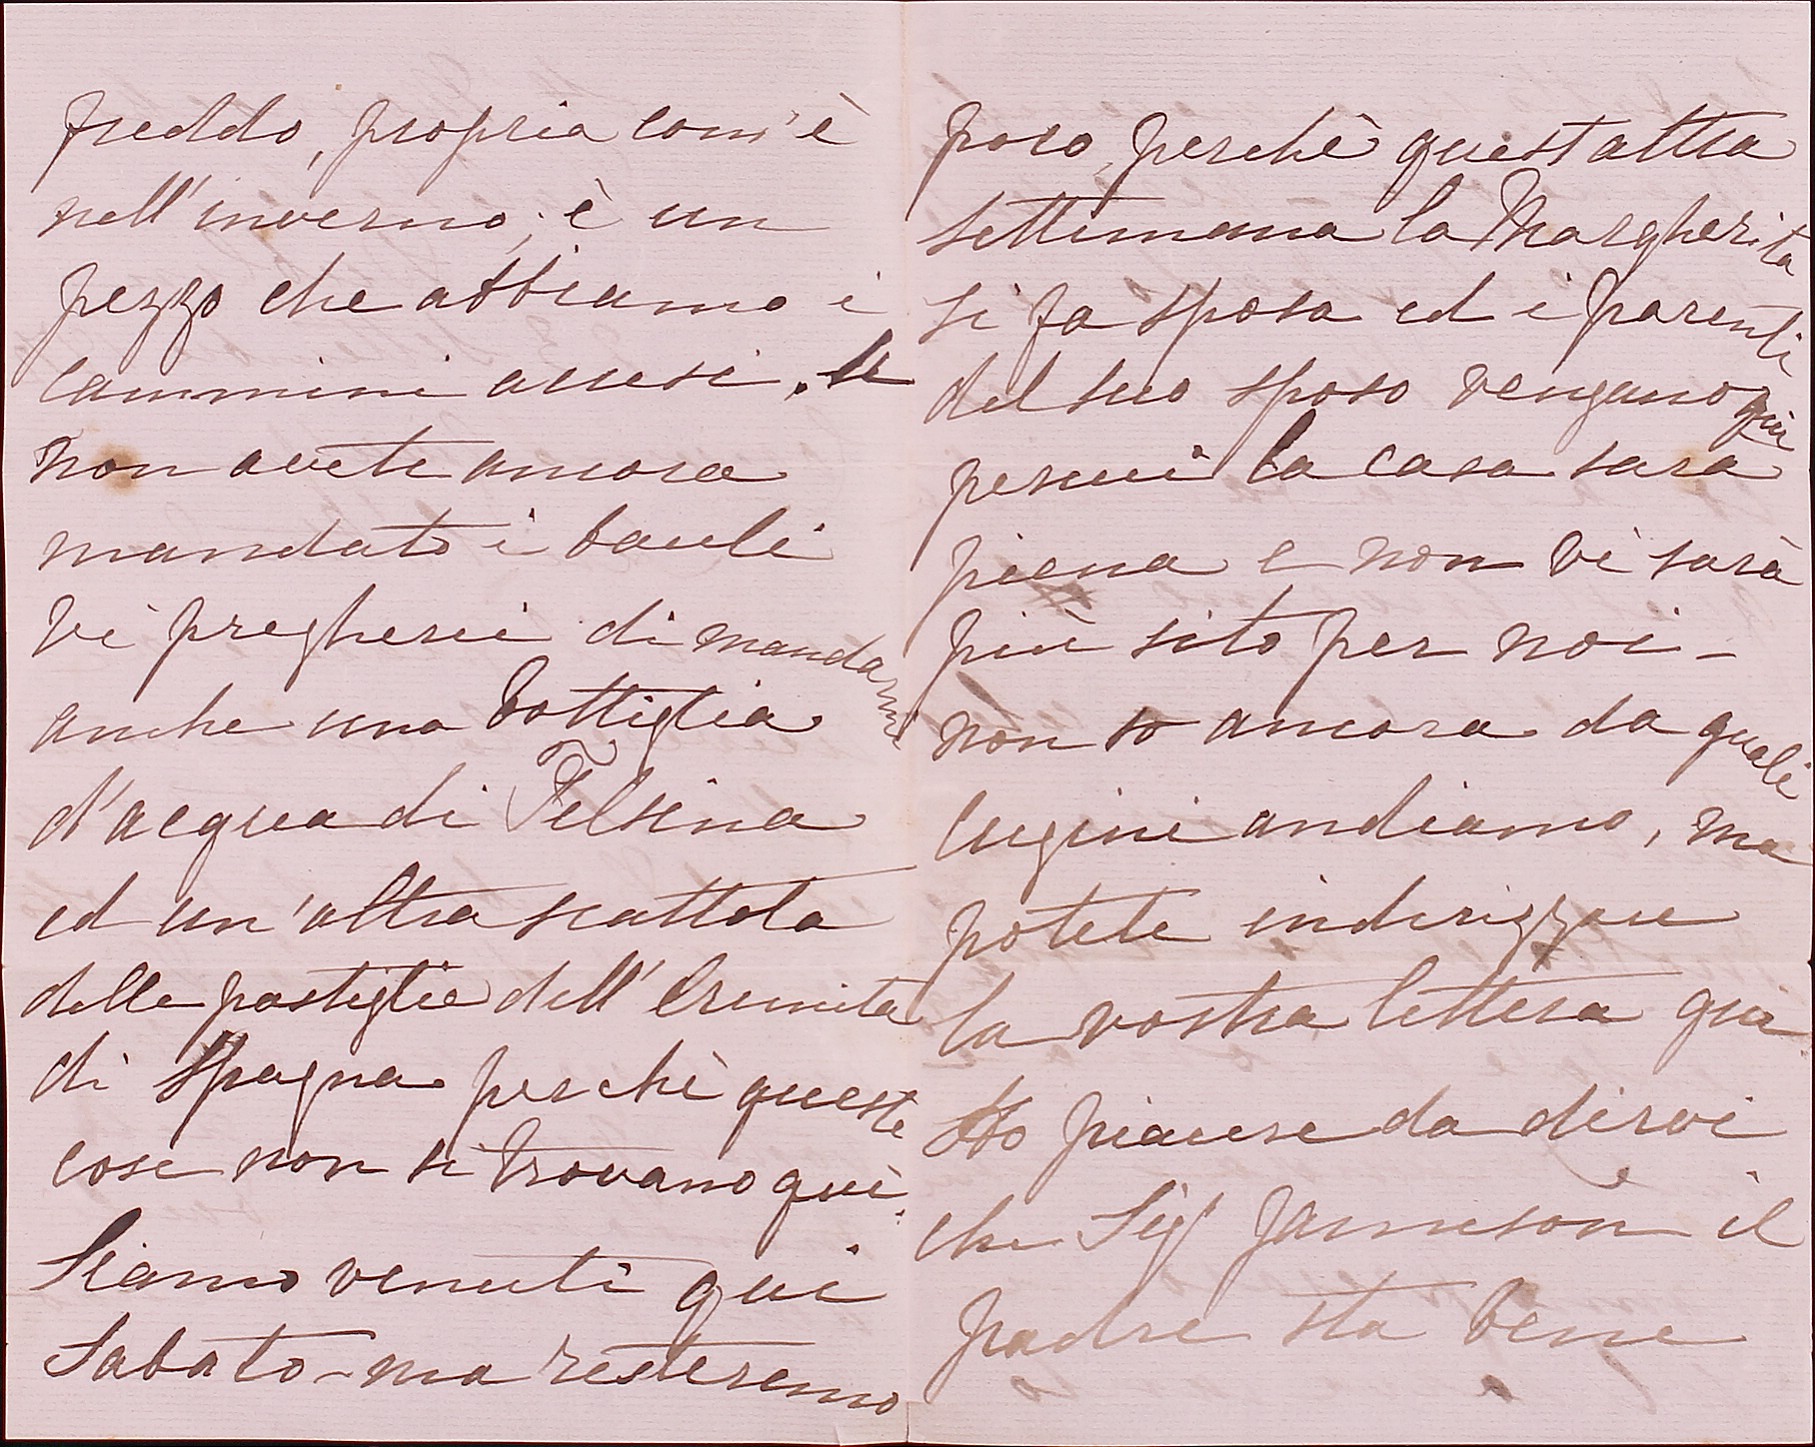 freddo, propria com'è
nell'inverno; è un
pezzo che abbiamo i
cammini accesi. Se
non avete ancora
mandato i bauli
vi pregherei di mandarmi
anche una bottiglia
d'acqua di Felsina
ed un'altra scattola
delle pastiglie dell'Eremita
di Spagna perchè queste
cose non si trovano quì.
Siamo venuti qui
Sabato - ma resteremo
poco, perchè quest altra
settimana la Margherita
si fa sposa ed i parenti
del suo sposo vengano quì
percui la casa sarà
piena e non vi sarà
più sito per noi -
non so ancora da quali
cugini andiamo, ma
potete indirizzare
la vostra lettera quì
Ho piacere da dirvi
che Sigr Jameson il
padre sta bene